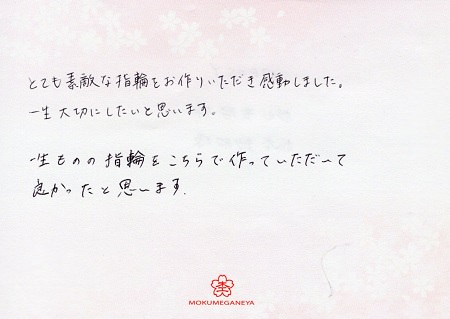 とても素敵な指輪をお作りいただき感動しました。
一生大切にしたいと思います。
一生ものの指輪をこちらで作っていただいて
良かったと思います.
MOKUMEGANEYA